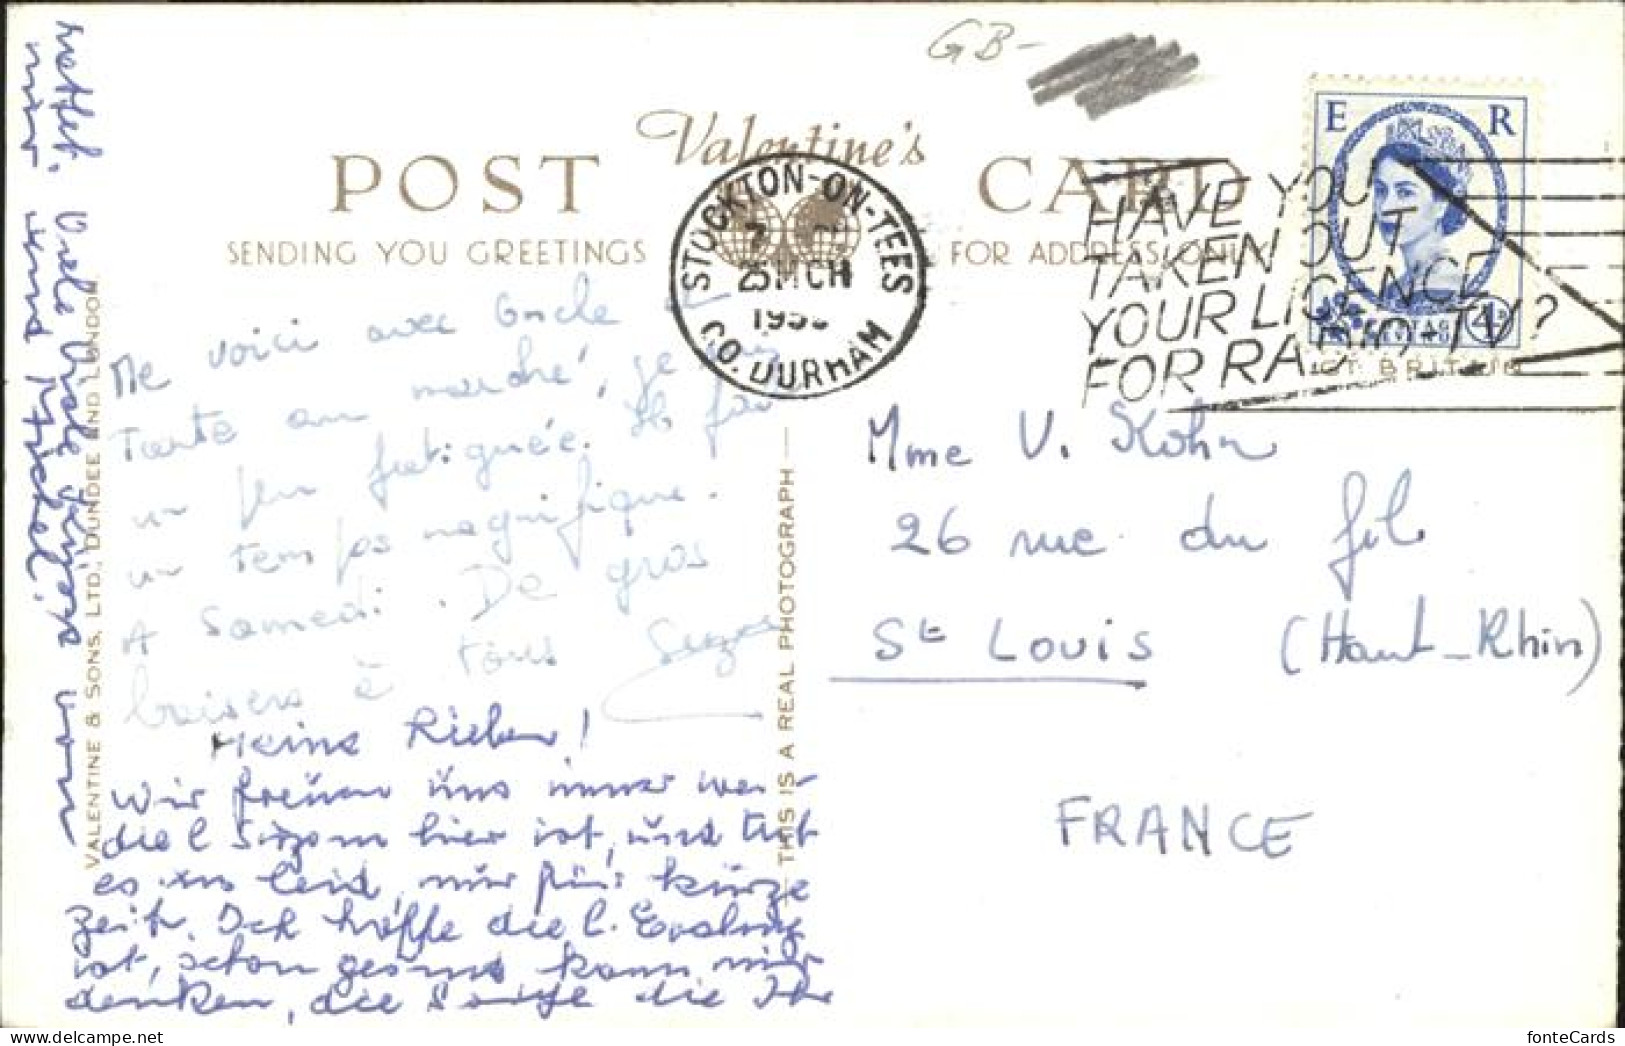 GB-
Valentine's
POST CARD
SENDING YOU GREETINGS
FOR ADDRESS ONLY
STOCKTON-ON-TEES
25 MCH
CO. DURHAM
HAVE YOU
TAKEN OUT
YOUR LICENCE
FOR RADIO-TV?
E R
Me voici avec Oncle et
Tante au marché, je suis
un peu fatiguée. Il fait
un temps magnifique.
A Samedi. De gros
baisers à tous
Meine Lieben!
Wir freuen uns immer wen-
die l. hier ist, und tut
es uns leid, nur für kürze
Zeit. Ich hoffe die l.
ist, schon gesund kann mir
denken, die Sorge die Ihr
hattet. Viele Viele Grüsse von
mir und Michel.
VALENTINE & SONS, LTD., DUNDEE AND LONDON
THIS IS A REAL PHOTOGRAPH
Mme V. Kohn
26 rue du fil
St Louis (Haut-Rhin)
FRANCE
fonteCards